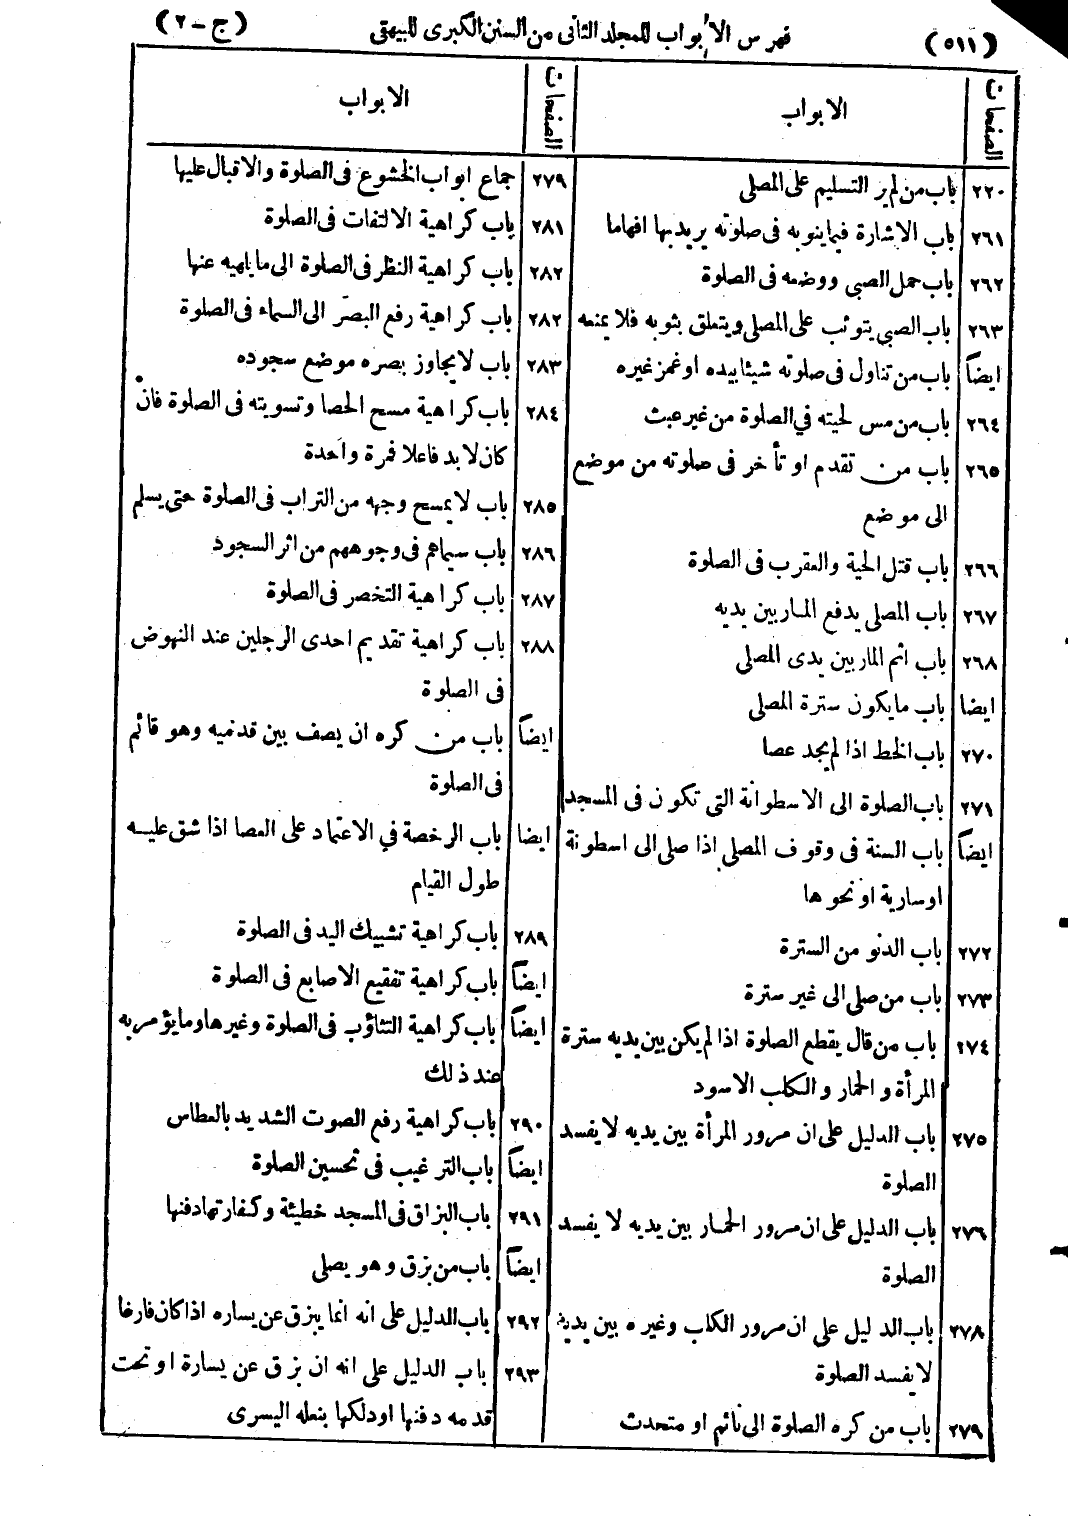 (٥١١) فهرس الابواب للمجلد الثانى من السنن الكبرى للبيهقى (ج - ٢)
الصفحات الابواب
٢٢٠ باب من لم ير التسليم على المصلى
٢٦١ باب الاشارة فيما ينوبه فى صلوته يريد بها افهاما
٢٦٢ باب حمل الصبى ووضعه فى الصلوة
٢٦٣ باب الصبى يتوثب على المصلى ويتعلق بثوبه فلا يمنعه
ايضاً باب من تناول فى صلوته شيئا بيده او غمز غيره
٢٦٤ باب من مس لحيته في الصلوة من غير عبث
٢٦٥ باب من تقدم او تأخر فى صلوته من موضع
الى موضع
٢٦٦ باب قتل الحية والعقرب فى الصلوة
٢٦٧ باب المصلى يدفع المار بين يديه
٢٦٨ باب اثم المار بين يدى المصلى
ايضا باب ما يكون سترة المصلى
٢٧٠ باب الخط اذا لم يجد عصا
٢٧١ باب الصلوة الى الاسطوانة التى تكون فى المسجد
ايضاً باب السنة فى وقوف المصلى اذا صلى الى اسطونة
اوسارية او نحوها
٢٧٢ باب الدنو من السترة
٢٧٣ باب من صلى الى غير سترة
٢٧٤ باب من قال يقطع الصلوة اذا لم يكن بين يديه سترة
المرأة و الحمار و الكلب الاسود
٢٧٥ باب الدليل على ان مرور المرأة بين يديه لا يفسد
الصلوة
٢٧٦ باب الدليل على ان مرور الحمار بين يديه لا يفسد
الصلوة
٢٧٨ باب الدليل على ان مرور الكلب وغيره بين يديه
لا يفسد الصلوة
٢٧٩ باب من كره الصلوة الى نائم او متحدث
الصفحات الابواب
٢٧٩ جماع ابواب الخشوع فى الصلوة والاقبال عليها
٢٨١ باب كراهية الالتفات فى الصلوة
٢٨٢ باب كراهية النظر فى الصلوة الى ما يلهيه عنها
٢٨٢ باب كراهية رفع البصر الى السماء فى الصلوة
٢٨٣ باب لا يجاوز بصره موضع سجوده
٢٨٤ باب كراهية مسح الحصا وتسويته فى الصلوة فان
كان لا بد فاعلا فمرة واحدة
٢٨٥ باب لا يمسح وجهه من التراب فى الصلوة حتى يسلم
٢٨٦ باب سيماهم فى وجوههم من اثر السجود
٢٨٧ باب كراهية التخصر فى الصلوة
٢٨٨ باب كراهية تقديم احدى الرجلين عند النهوض
فى الصلوة
ايضاً باب من كره ان يصف بين قدميه وهو قائم
فى الصلوة
ايضا باب الرخصة في الاعتماد على العصا اذا شق عليه
طول القيام
٢٨٩ باب كراهية تشبيك اليد فى الصلوة
ايضاً باب كراهية تفقيع الاصابع فى الصلوة
ايضاً باب كراهية التثاؤب فى الصلوة وغيرها وما يؤمر به
عند ذلك
٢٩٠ باب كراهية رفع الصوت الشديد بالعطاس
ايضاً باب الترغيب فى تحسين الصلوة
٢٩١ باب البزاق فى المسجد خطيئة وكفارتها دفنها
ايضاً باب من بزق وهو يصلى
٢٩٢ باب الدليل على انه انما يبزق عن يساره اذا كان فارغا
٢٩٣ باب الدليل على انه ان بزق عن يسارة او تحت
قدمه دفنها اودلكها بنعله اليسرى